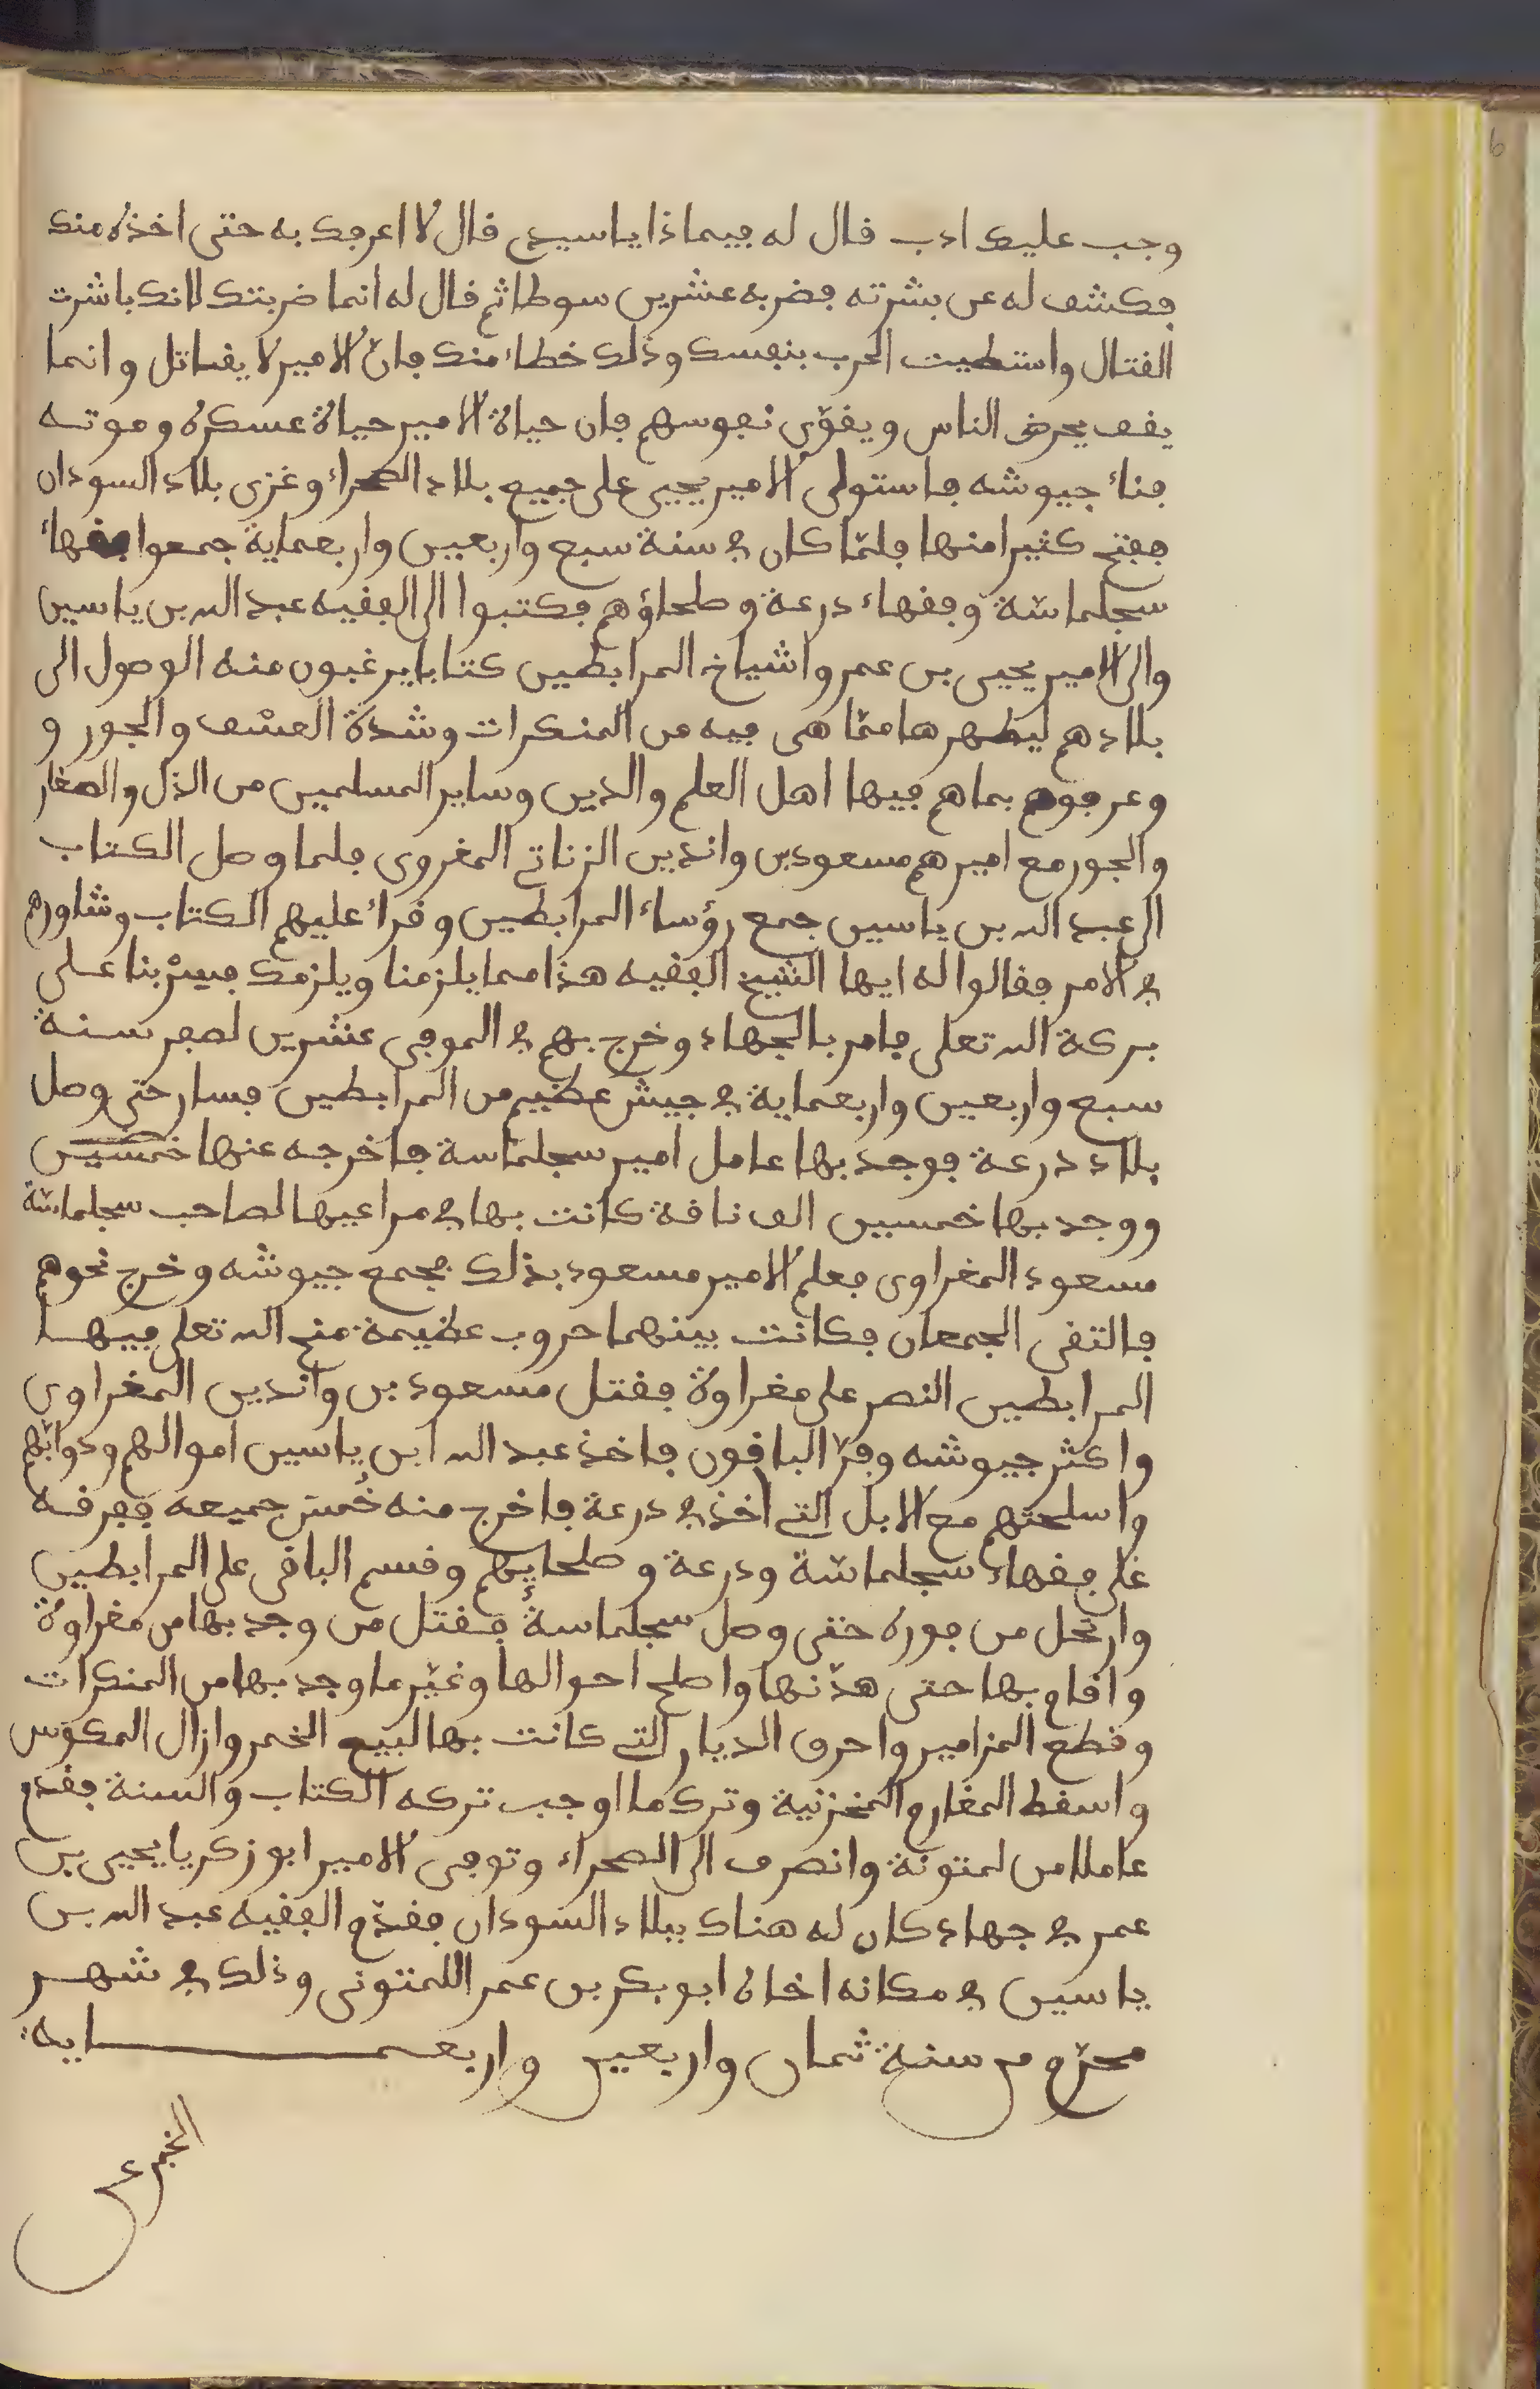 وجب عليك ادب فال له فيما ذا يا سيدي فال لا اعرفك به حتى اخذه منك
فكشف له عن بشرته فضربه عشرين سوطا ثم فال له انما ضربتك لانك باشرت
الفتال واصطليت الحرب بنفسك وذلك خطاء منك فانّ الامير لا يفاتل وانما
يفف يحرض الناس ويفوّي نفوسهم فان حياة الامير حياة عسكره وموته
فناء جيوشه فاستولى الامير يحيى على جميع بلاد الصحراء وغزى بلاد السودان
ففتح كثيرا منها فلمّا كان في سنة سبع واربعين واربعماية جمعوا ففهاء
سجلماسّة وففهاء درعة وصلحاؤهم فكتبوا الى الففيه عبد الله بن ياسين
والى الامير يحيى بن عمر واشياخ المرابطين كتابا يرغبون منه الوصول الى
بلادهم ليطهرها ممّا هي فيه من المنكرات وشدة العسْف والجور و
وعرفوهم بما هم فيها اهل العلم والدين وساير المسلمين من الذل والصغار
والجور مع اميرهم مسعود بن واندين الزناتي المغروي فلما وصل الكتاب
الى عبد الله بن ياسين جمع رؤساء المرابطين وفراء عليهم الكتاب وشاورهم
في الامر ففالوا له ايها الشيخ الففيه هذا مما يلزمنا ويلزمك فسِرْ بنا على
بركة الله تعلى فامر بالجهاد وخرج بهم في الموفي عشرين لصفر سنة
سبع واربعين واربعماية في جيش عظيم من المرابطين فسار حتى وصل
بلاد درعة فوجد بها عامل امير سجلماسة فاخرجه عنها خمسين
ووجد بها خمسين الف نافة كانت بها في مراعيها لصاحب سجلماسّة
مسعود المغراوي فعلم الامير مسعود بذلك فجمع جيوشه وخرج نحوهم
فالتفى الجمعان فكانت بينهما حروب عظيمة منح الله تعلى فيها
المرابطين النصر على مغراوة ففتل مسعود بن واندين المغراوي
واكثر جيوشه وفرّ البافون فاخذ عبد الله ابن ياسين اموالهم ودوابّهم
واسلحتهم مع الابل التي اخذ في درعة فاخرج منه خُمسَ جميعه ففرفه
على ففهاء سجلماسّة ودرعة وصلحايهم وفسم البافي على المرابطين
وارتحل من فوره حتى وصل سجلماسة ففتل من وجد بها من مغراوة
وافام بها حتى هدّنها واصلح احوالها وغيّر ما وجد بها من المنكرات
وفطع المزامير واحرف الديار التي كانت بها لبيع الخمر وازال المكوس
واسفط المغارم المخزنية وترك ما اوجب تركه الكتاب والسنة ففدم
عاملا من لمتونة وانصرف الى الصحراء وتوفي الامير ابو زكريا يحيى بن
عمر في جهاد كان له هناك ببلاد السودان ففدّم الففيه عبد الله بن
ياسين في مكانه اخاه ابو بكر بن عمر اللمتوني وذلك في شهر
محرّم من سنة ثمان واربعين واربعماية
الخبر عن
6